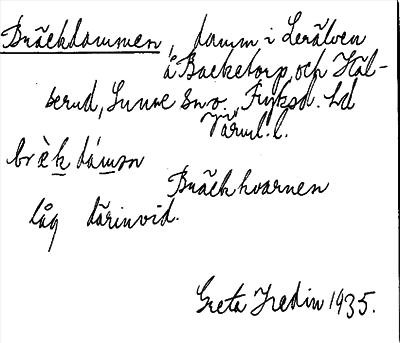 Bräckdammen, damm i Lerälven
å Backetorp och Häl-
serud, Sunne sn o. Fryksd. hd
Värml. l.
brèk dámsn
Bräckkvarnen
låg därinvid.
Greta Hedin 1935.